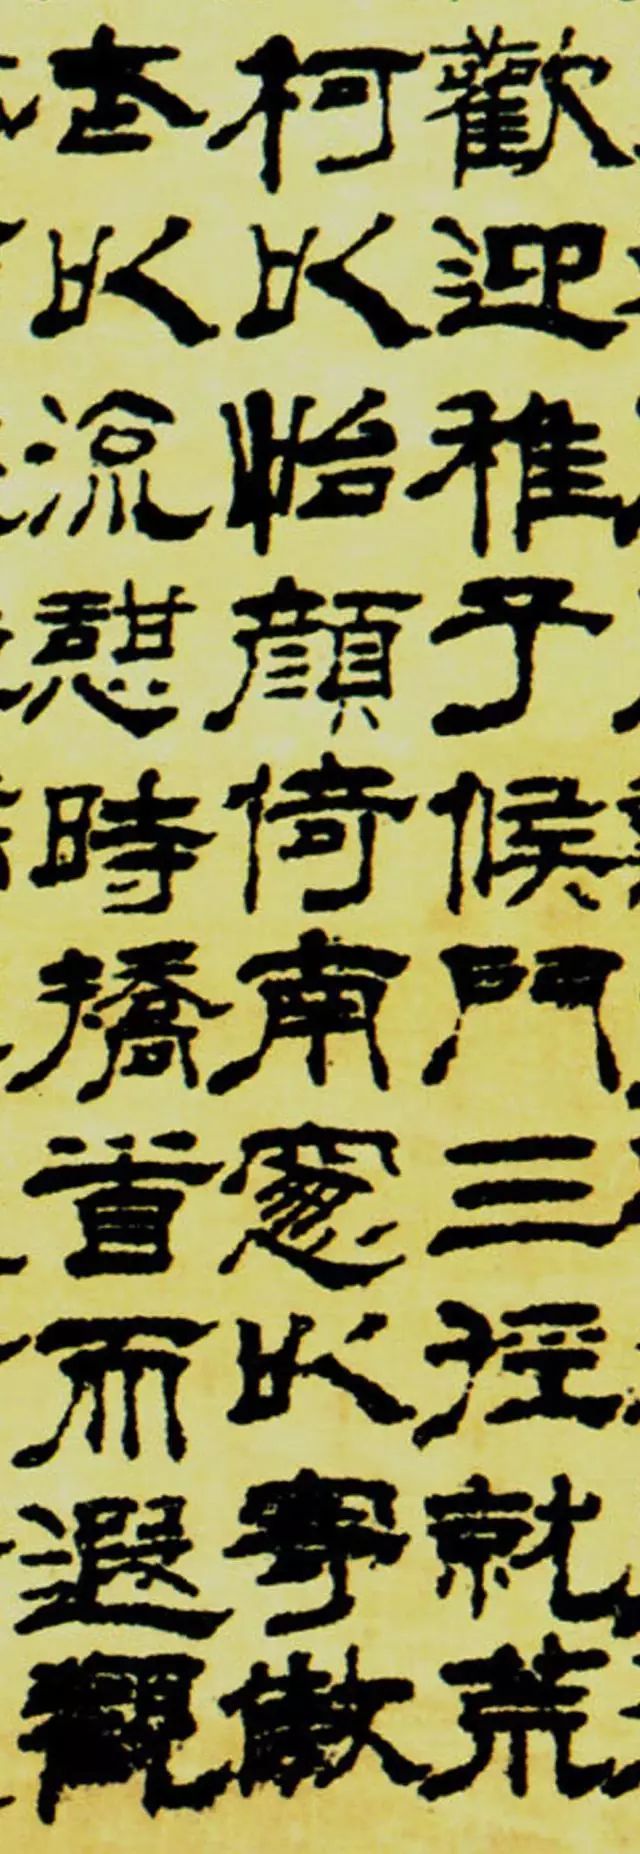 歡迎稚子候門三徑就荒
柯以怡顏倚南窻以寄傲
老以流憇時矯首而遐觀